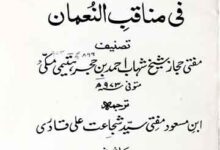 فی مناقب النعمان
تصنیف
مفتی حجاز شیخ شہاب احمد بن حجر ہیتمی مکی
متوفی ۹۷۳ھ
ترجمہ
ابن مسعود مفتی سید شجاعت علی قادری